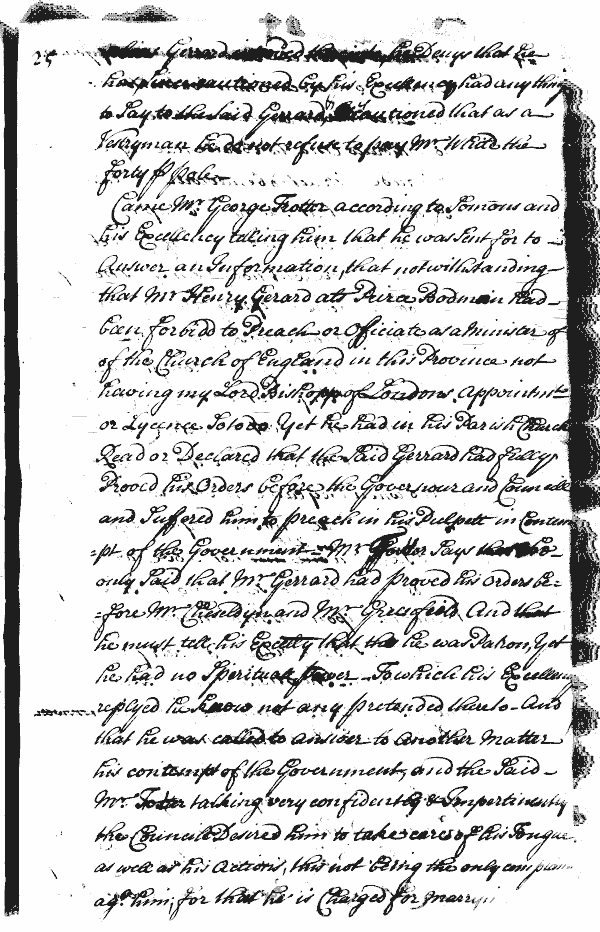 25
Gerrard he Denys that he
has since cautioned by his Excellency had any thing
to Say to the Said Gerrard Cautioned that as a
Vestryman he do not refuse to pay Mr. White the
forty P pole
Came Mr. George Trotter according to Somons and
his Excellency telling him that he was Sent for to
Answer an Information, that notwithstanding
that Mr Henry Gerard ats Peirce Bodmon had
been forbidd to Preach or Officiate as a Minister of
of the Church of England in this Province not
having my Lord Bishopp of Londons Appointmt.
or Lycence Sotodo Yet he had in his Parish Church
Read or Declared that the Said Gerrard had fully
Proved his Orders before the Governour and Councill
and Suffered him to preach in his Pulpett in Contem
=pt of the Government - Mr. Trotter Says
only Said that Mr. Gerrard had proved his Orders be=
=fore Mr. Cheseldyn and Mr. Greesfield And that
he must tell his Excelly that he was Patron, Yet
he had no Speritual power - To which his Excellency
replyed he know not any pretended thereto - And
that he was called to answer to another Matter
his contempt of the Government, and the Said
Mr. Trotter talking very confidently & Impertinently
the Councill Desired him to take care of his Tongue
as well as his Actions, this not being the only complaint
agt. him, for that he is Charged for marryin